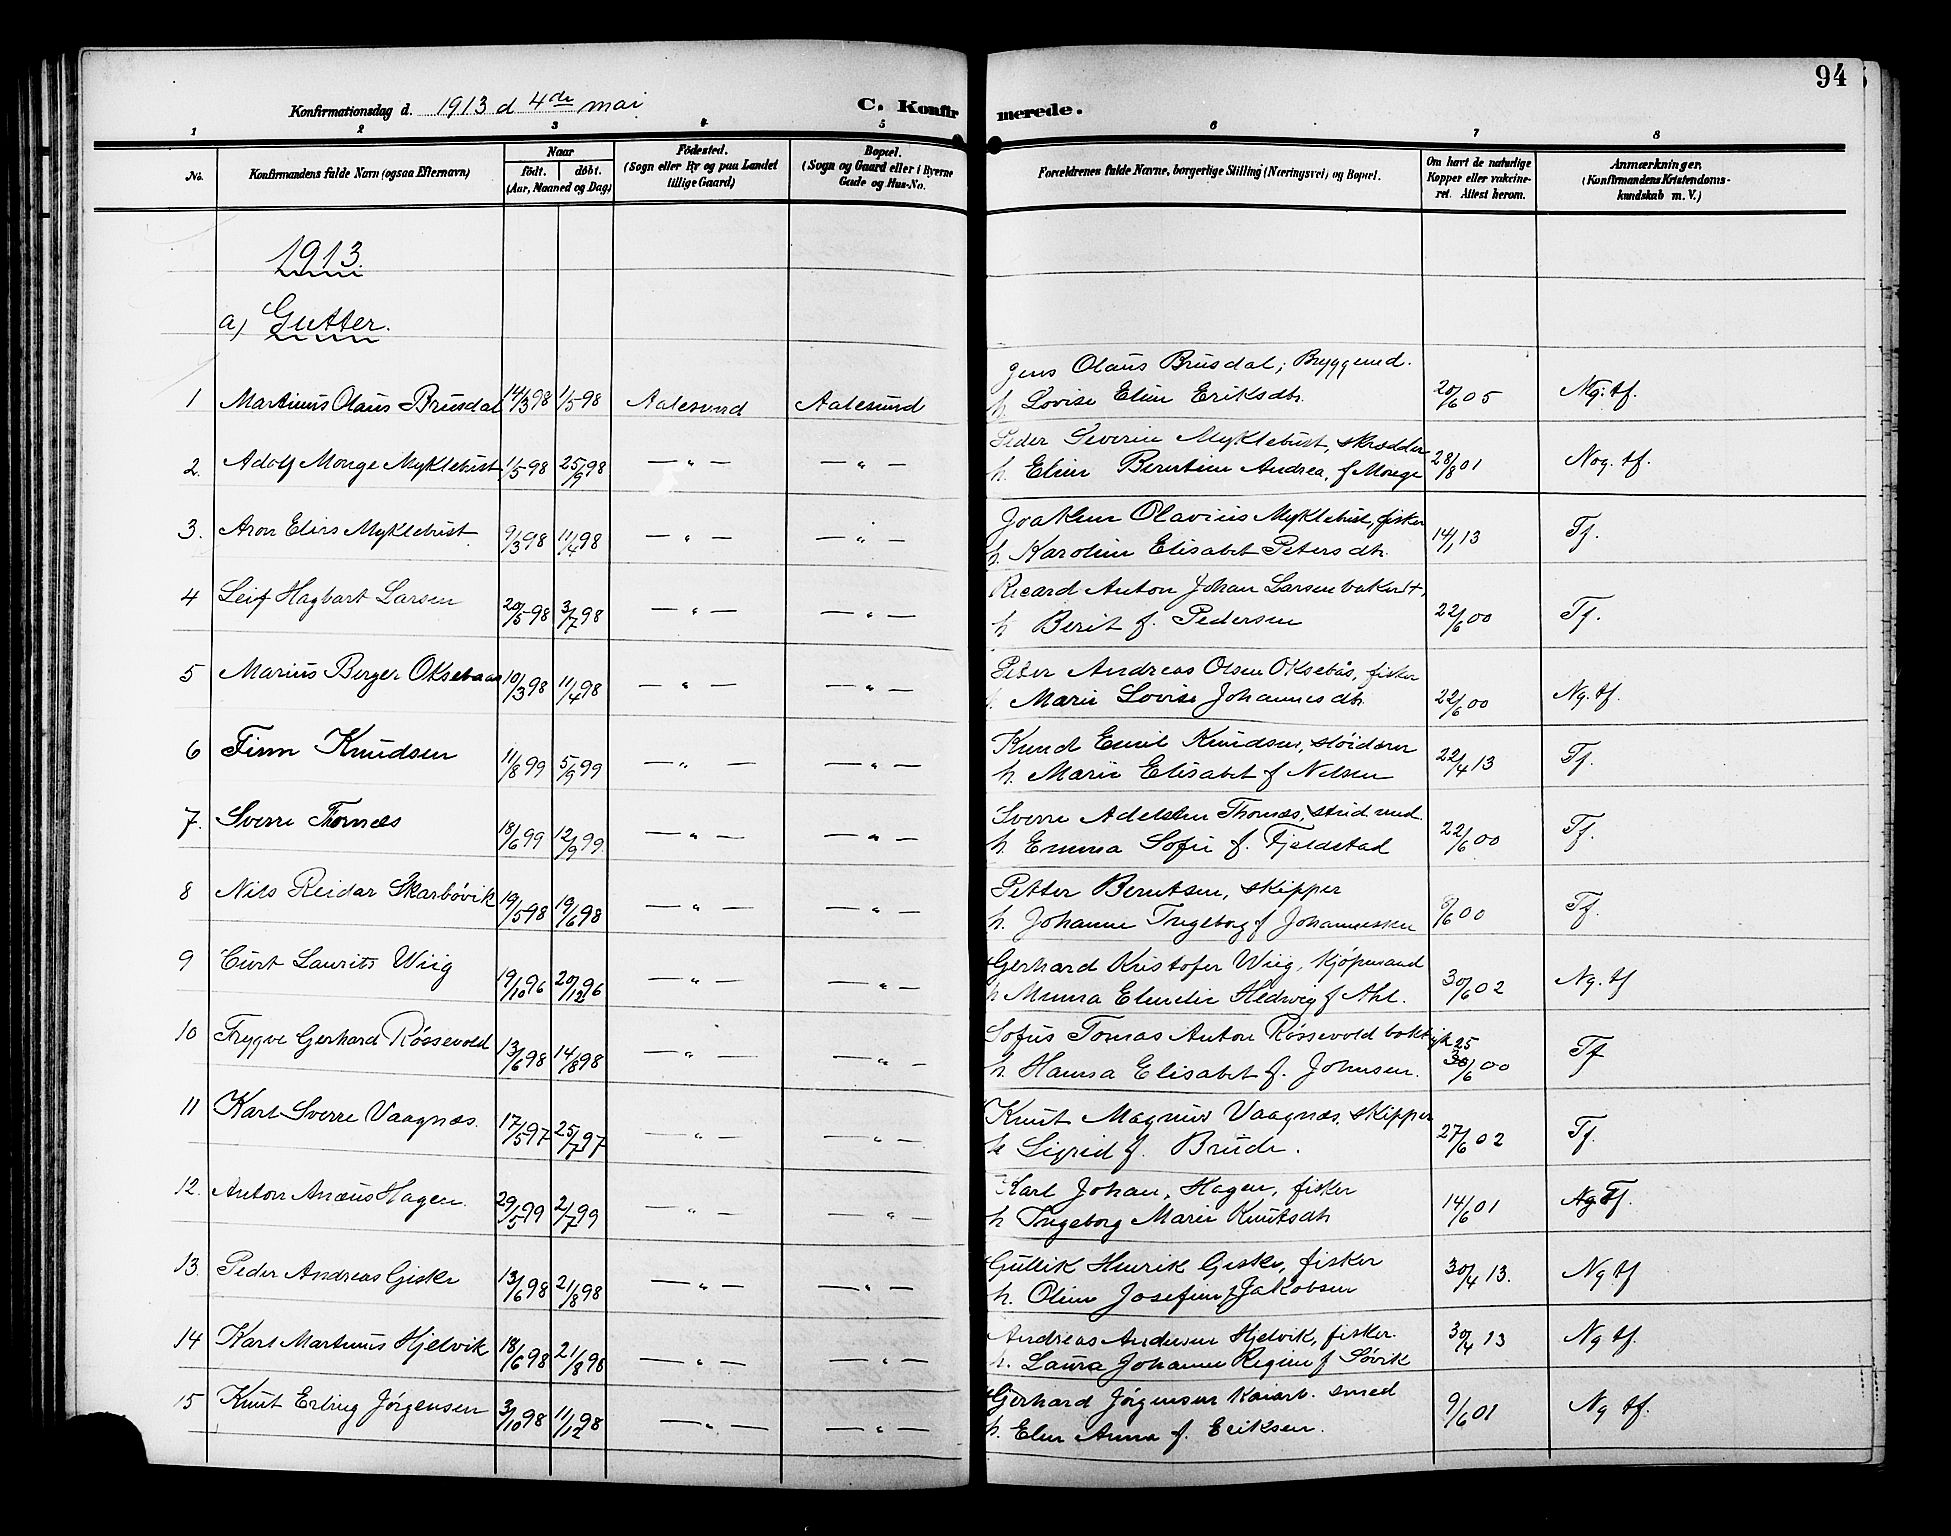 94
Konfirmationsdag d. 1913 d 4de mai
C. Konfirmerede.
1 2 3 4 5 6 7 8
No.
Konfirmandens fulde Navn (ogsaa Efternavn)
Naar
født. døbt.
(Aar, Maaned og Dag)
Fødested.
(Sogn eller By og paa Landet
tillige Gaard)
Bopæl.
(Sogn og Gaard eller i Byerne
Gade og Hus-No.
Forældrenes fulde Navne, borgerlige Stilling (Næringsvei) og Bopæl.
Om havt de naturlige
Kopper eller vakcine-
ret. Attest herom.
Anmærkninger.
(Konfirmandens Kristendoms-
kundskab m. V.)
1913.
a) Gutter.
Jens Olaus Brusdal, Bryggemd.
1 Martinus Olaus Brusdal 14/3 98 1/5 98 Aalesund Aalesund h. Lovise Eline Eriksdtr. 20/6 05 Ng. tf.
Peder Severin Myklebust, skrædder
2. Adolf Monge Myklebust 1/5 98 25/9 98 — „ — — „ — h. Eline Berntine Andrea, f Monge 28/8 01 Nog. tf.
Joakim Olavius Myklebust, fisker
3. Aron Elias Myklebust 9/3 98 11/4 98 — „ — — „ — h. Karoline Elisabet Petersdtr. 14/1 13 Tf.
Ricard Anton Johan Larsen baker
4 Leif Hagbart Larsen 20/5 98 3/7 98 — „ — — „ — h Berit f. Pedersen 22/6 00 Tf.
Peter Andreas Olsen Oksebås, fisker
5 Marius Berger Oksebaas 10/3 98 11/4 98 — „ — — „ — Marie Lovise Johannesdtr. 22/6 00 Ng. tf.
Knud Emil Knudsen, sløidærer
6 Finn Knudsen 11/8 99 5/9 99 — „ — — „ — h. Marie Elisabet f Nilsen 22/4 13 Tf.
Sverre Adelsten Thornæs,
7. Sverre Thornæs 18/6 99 12/9 99. — „ — — „ — h. Emma Sofie f. Fjeldstad 22/6 00 Tf.
Petter Berntsen, skipper
8 Nils Reidar Skarbøvik 19/5 98 19/6 98 — „ — — „ — h. Johanne Ingeborg f Johannessen 8/6 00 Tf.
Gerhard Kristofer Wiig, kjøpmand
9 Curt Laurits Wiig 19/10 96 20/12 96 — „ — — „ — h Minna Hedwig f Ahl. 30/6 02 Ng. tf
Sofus Tomas Anton Røssevold
10 Trygve Gerhard Røssevold 13/6 98 14/8 98 — „ — — „ — h. Hanna Elisabet f. Johnsen. 25/6 00 Tf
Knut Magnus Vaagnæs, skipper
11 Karl Sverre Vaagnæs. 17/5 97 25/7 97 — „ — — „ — h Sigrid f. Brude. 27/6 02 Tf.
Karl Johan, Hagen, fisker
12. Anton Anæus Hagen. 29/5 99 2/7 99 — „ — — „ — h Ingeborg Marie Knutsdtr 14/6 01 Ng Tf.
Gullik Henrik Giske, fisker
13. Peder Andreas Giske 13/6 98 21/8 98 — „ — — „ — h. Oline Josefine f Jakobsen 30/4 13. Ng. tf
Andreas Andersen Hjelvik, fisker.
14 Karl Martinus Hjelvik 18/6 98 21/8 98 — „ — — „ — h. Laura Johanne Regine f Søvik 30/4 13 Ng tf.
Gerhard Jørgensen Kaiarb. smed
15 Knut Erling Jørgensen 3/10 98 11/12 98 — „ — — „ — h. Elen Anna f. Eriksen. 9/6 01 Ng tf.